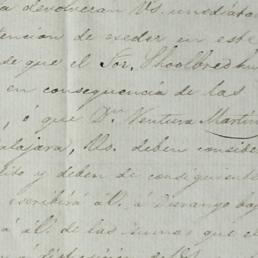 a devolveran VS. unediatom
tencion de eceder en este
de que el Sor. Shoolbred hu
en consequencia de las
, ó que Dn Ventura Martin
alajara, Us. deben consider
dito y deben de consiguiente
escribirá áll. á Durango baj
rá áll. de las sumas que el